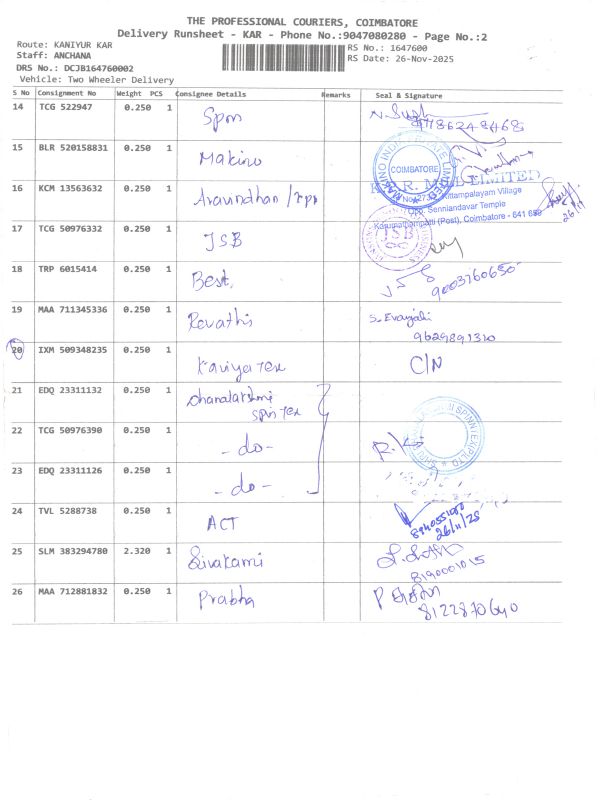 THE PROFESSIONAL COURIERS, COIMBATORE
Delivery Runsheet - KAR - Phone No.:9047080280 - Page No.:2
Route: KANIYUR KAR
Staff: ANCHANA
DRS No.: DCJB164760002
Vehicle: Two Wheeler Delivery
RS No.: 1647600
RS Date: 26-Nov-2025
S No Consignment No Weight PCS Consignee Details Remarks Seal & Signature
14 TCG 522947 0.250 1 Spm
15 BLR 520158831 0.250 1 Makino
COIMBATORE
16 KCM 13563632 0.250 1 Aravindhan
LIMITED
Village
Senniandavar Temple
(Post), Coimbatore - 641 659
17 TCG 50976332 0.250 1 JSB
JSB
18 TRP 6015414 0.250 1 Best,
9003760650
19 MAA 711345336 0.250 1 Revathi
9629891310
20 IXM 509348235 0.250 1 Kaviya Tex C/N
21 EDQ 23311132 0.250 1 Dhanalakshmi
Spin Tex
22 TCG 50976390 0.250 1 - do -
23 EDQ 23311126 0.250 1 - do -
24 TVL 5288738 0.250 1 ACT
26/11/25
25 SLM 383294780 2.320 1 Sivakami
8190001015
26 MAA 712881832 0.250 1 Prabha
8122870640